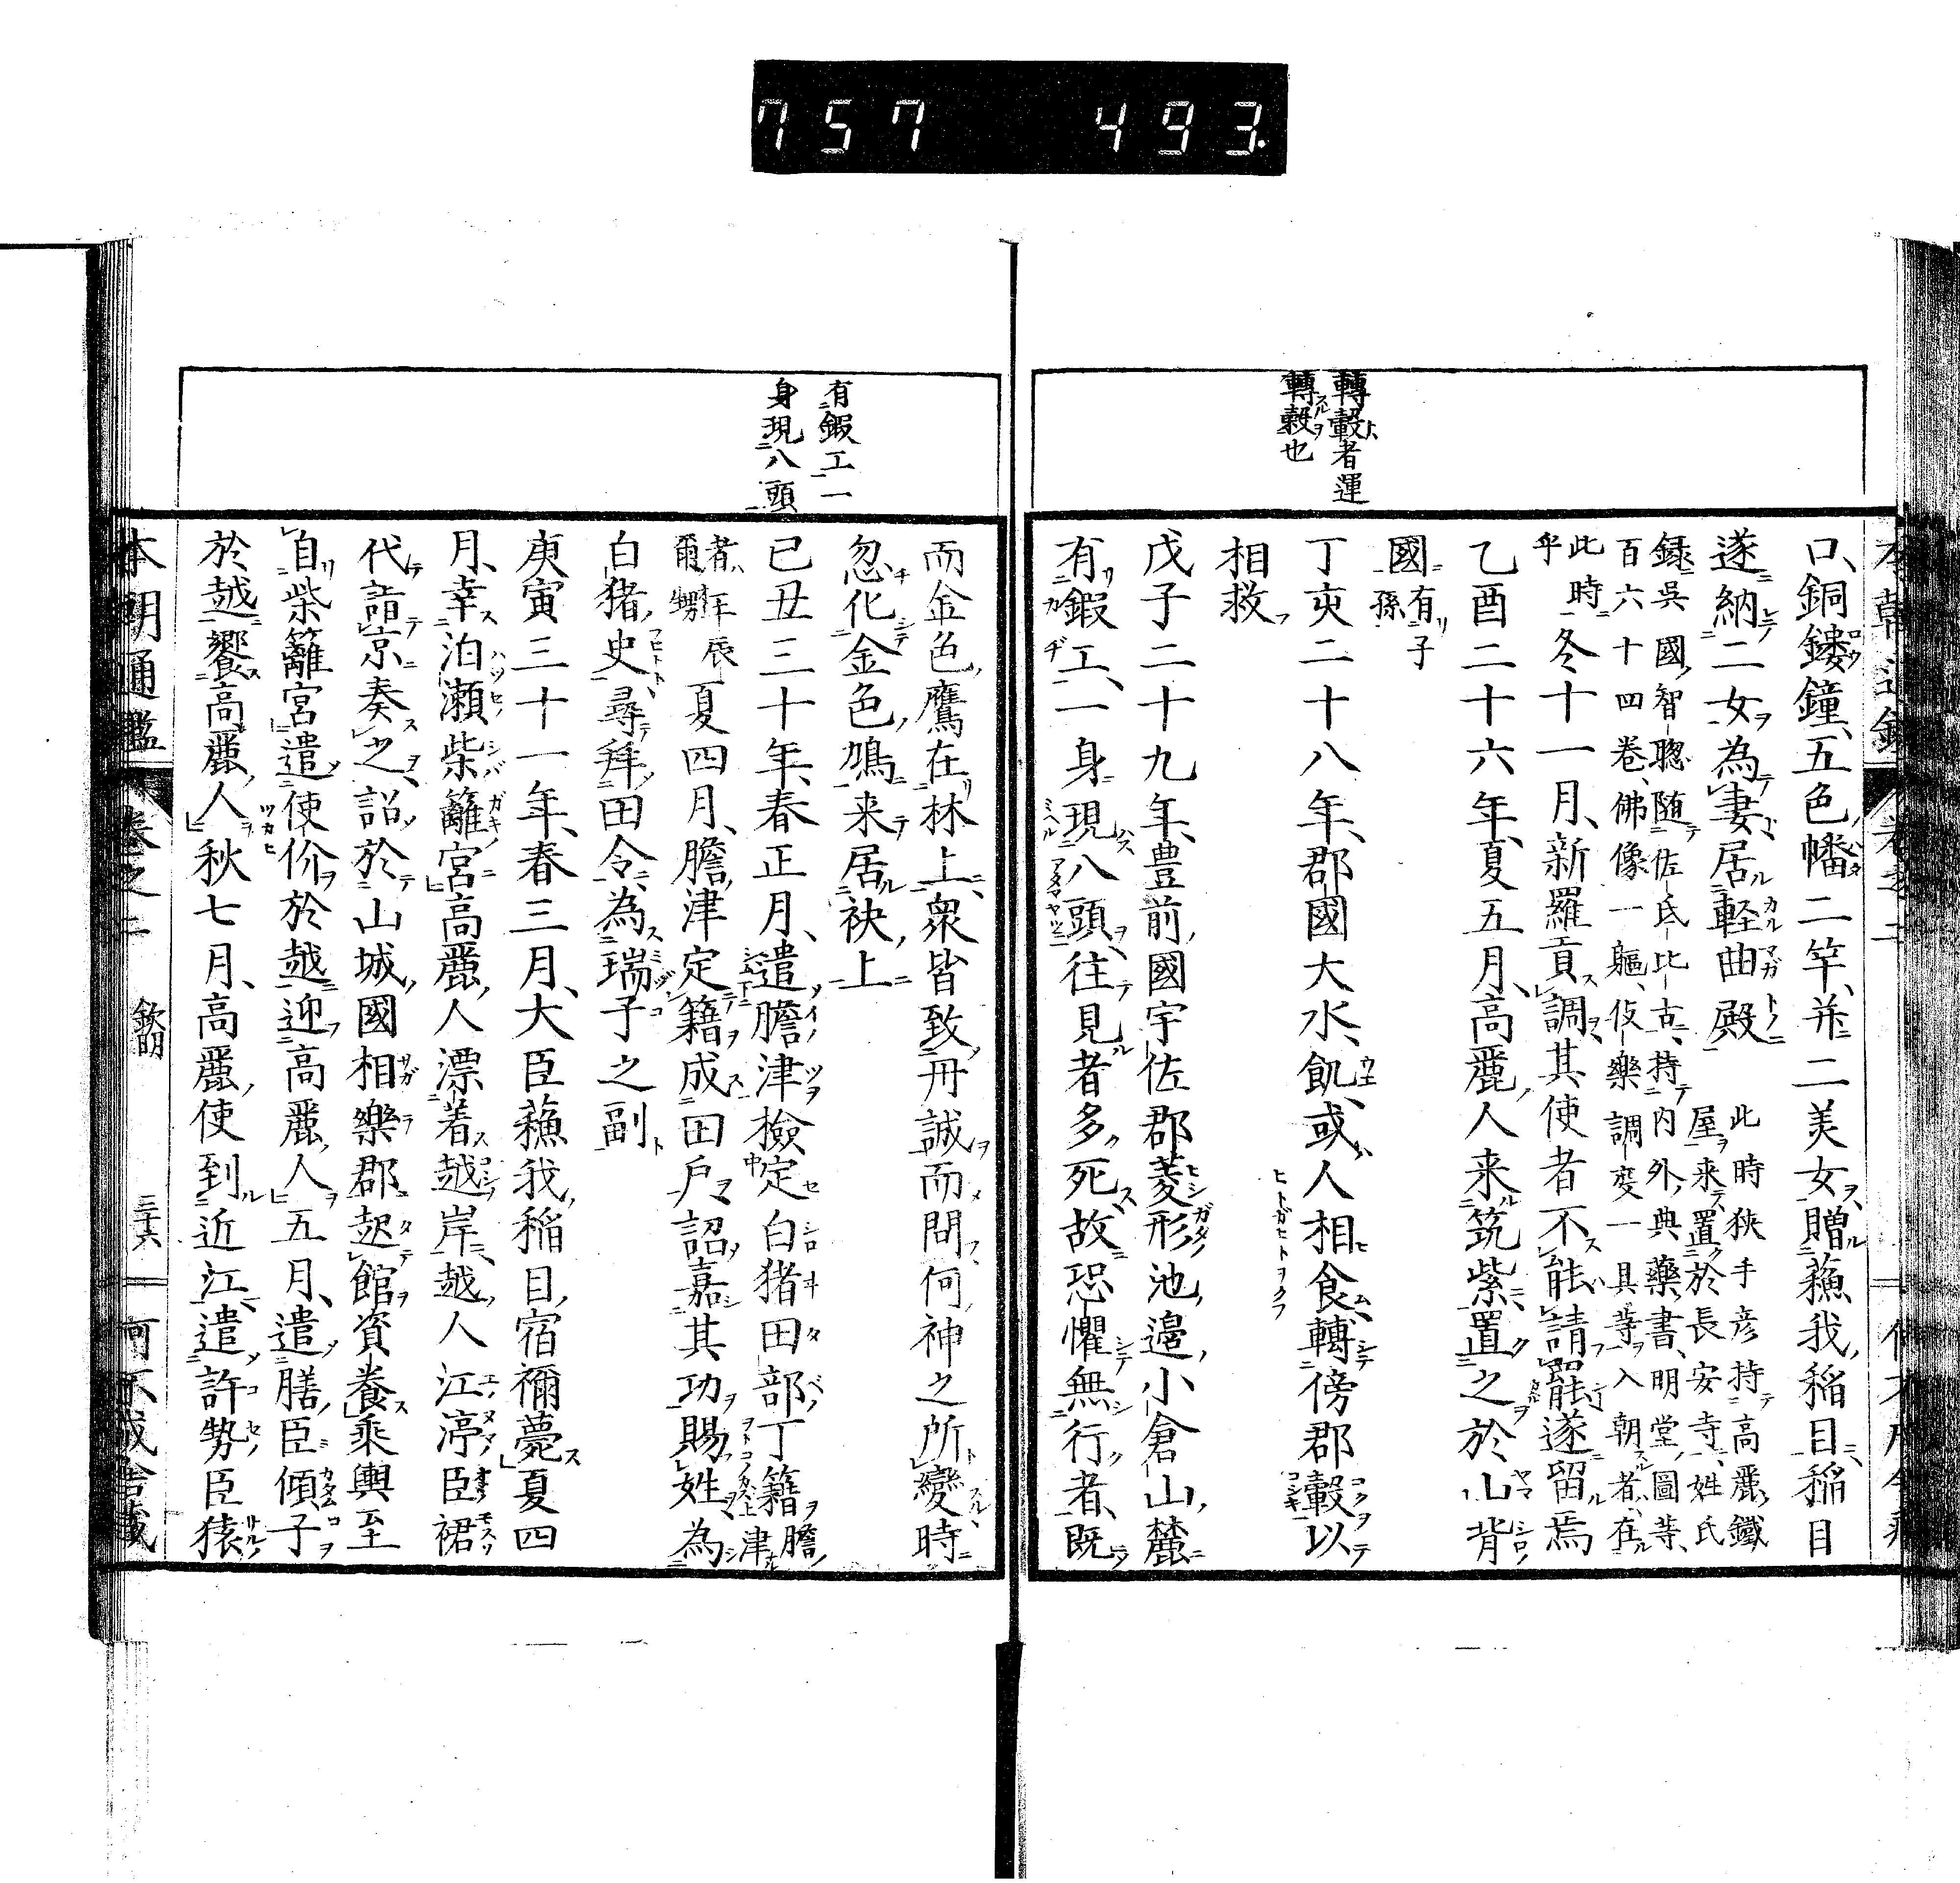 757 493.
轉轂者運
轉轂也
口、銅鏤鐘、五色幡二竿、并二美女、贈蘓我稲目、稲目
遂納二女為妻居軽曲殿
此時狹手彦持高麗鐵
屋来置於長安寺、姓氏
録呉國智聰随佐氐比古、持内外典藥書、明堂圖等、
百六十四卷、佛像一軀、伎樂調度一具等入朝者、在
此時
冬十一月、新羅貢調、其使者不能請罷、遂留焉
乙酉二十六年、夏五月、高麗人来筑紫、置之於山背
國有子
孫
丁亥二十八年、郡國大水、飢、或人相食、轉傍郡轂以
相救
戊子二十九年、豊前國宇佐郡菱形池邊小倉山麓
有鍜工、一身現八頭、往見者多死、故恐懼無行者、既
有鍜工一
身現八頭
而金色鷹在林上、衆皆致丹誠而問何神之所變、時
忽化金色鳩来居袂上
己丑三十年、春正月、遣膽津檢定白猪田部丁籍膽津
者、
爾甥
夏四月、膽津定籍成田戸、詔嘉其功賜姓、為
白猪史、尋拜田令、為瑞子之副
庚寅三十一年、春三月、大臣蘓我稲目宿禰薨夏四
月、幸泊瀬柴籬宮高麗人漂着越岸、越人江渟臣裙
代詣京奏之、詔於山城國相樂郡、起館資養乘輿至
自柴籬宮遣使价於越迎高麗人五月、遣膳臣傾子
於越饗高麗人秋七月、高麗使到近江、遣許勢臣猿
本朝通鑑 卷之二 欽明 三十六